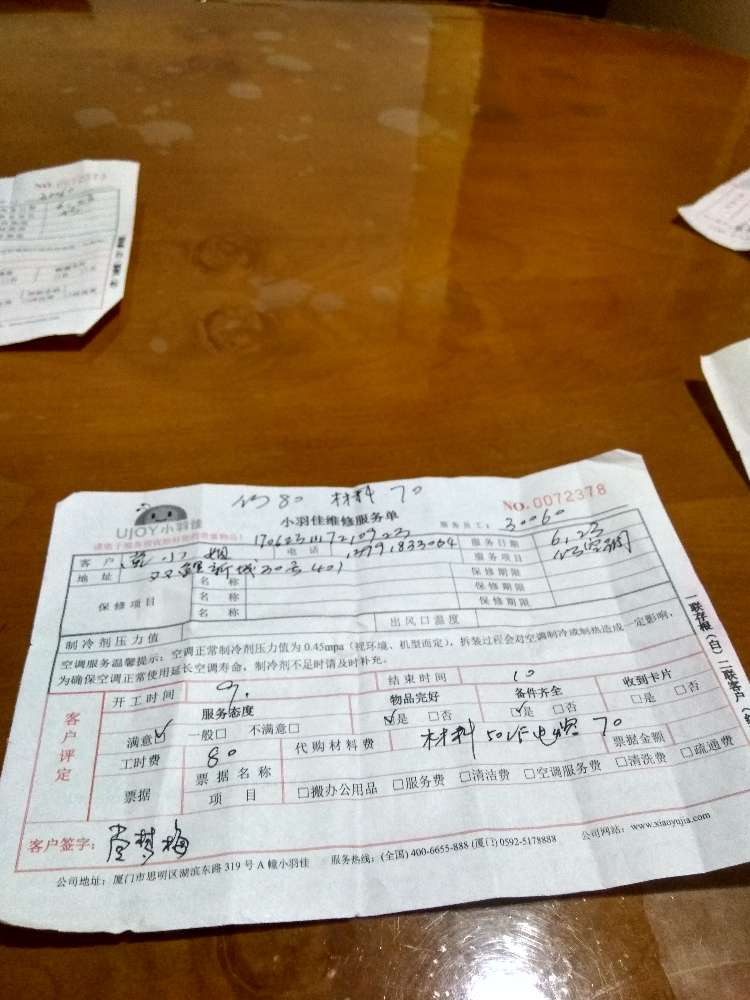 修80 材料 70
NO.0072378
UJOY小羽佳
小羽佳维修服务单
服务员工: 30060
客户 小姐 电话 服务日期 6.23
地址 双鲤新城20号401 服务项目 修空调
保修项目 名称 保修期限
名称 保修期限
名称 保修期限
制冷剂压力值 出风口温度
空调服务温馨提示:空调正常制冷剂压力值为0.45mpa(视环境、机型而定),拆装过程会对空调制冷或制热造成一定影响,
为确保空调正常使用延长空调寿命,制冷剂不足时请及时补充。
客户评定
开工时间 9. 结束时间 10
服务态度 物品完好 备件齐全 收到卡片
满意☑ 一般□ 不满意□ ☑是 □否 ☑是 □否 □是 □否
工时费 80 代购材料费 材料 50VF电容 70
票据 票据名称 票据金额
项目 □搬办公用品 □服务费 □清洁费 □空调服务费 □清洗费 □疏通费
客户签字:
公司地址:厦门市思明区湖滨东路319号A幢小羽佳 服务热线:(全国)400-6655-888 (厦门)0592-5178888 公司网站:www.xiaoyujia.com
一联存根(白)二联客户
NO.0072373